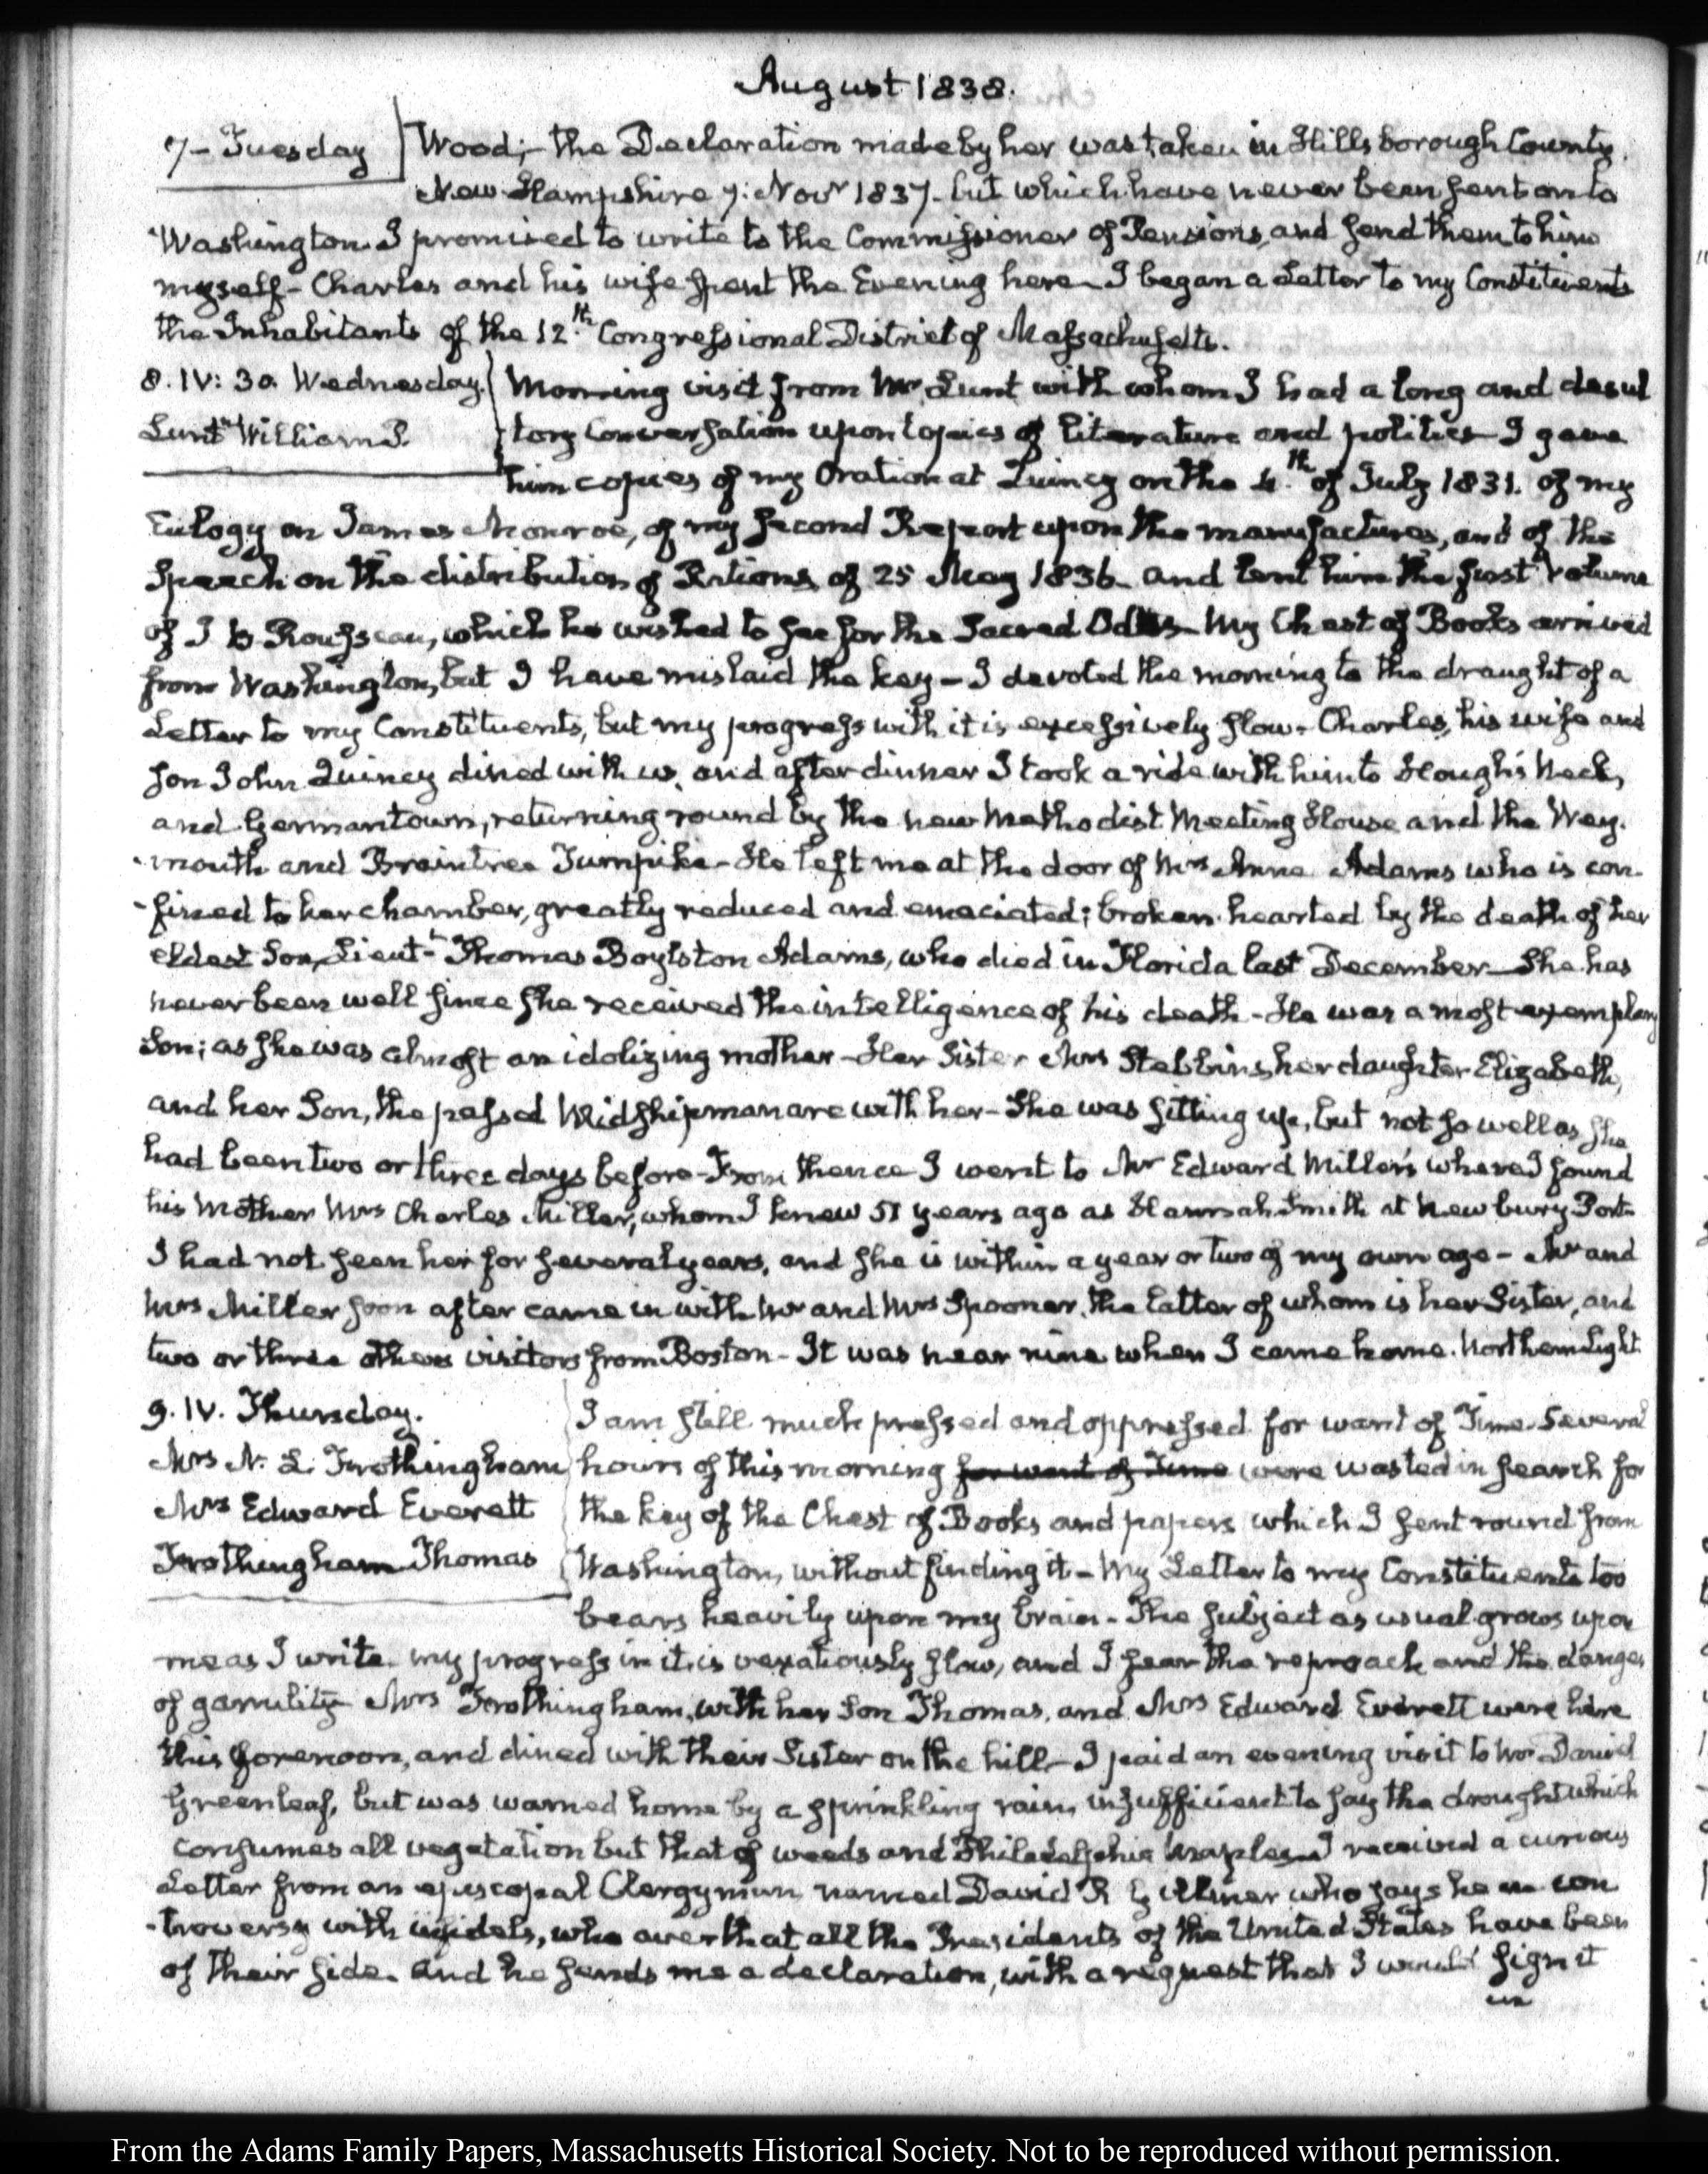 August 1838.
7 – Tuesday
Wood; – the Declaration made by her was taken in Hillsborough County
New-Hampshire 7. Novr 1837 – but which have never been sent on to
Washington. I promised to write to the Commissioner of Pensions, and send them to him
myself – Charles and his wife spent the Evening here – I began a Letter to my Constituents
the Inhabitants of the 12.th Congressional District of Massachusetts.
8. IV: 30. Wednesday.
Lunt William P.
Morning visit from Mr Lunt with whom I had a long and desul
tory conversation upon topics of literature and politics – I gave
him copies of my Oration at Quincy on the 4.th of July 1831. of my
Eulogy on James Monroe, of my second Report upon the manufactures, and of the
Speech on the distribution of Rations of 25 May 1836 – and lent him the first volume
of J B Rousseau, which he wished to see for the Sacred Odes – My Chest of Books arrived
from Washington, but I have mislaid the key – I devoted the morning to the draught of a
Letter to my Constituents, but my progress with it is excessively slow – Charles, his wife and
son John Quincy dined with us, and after dinner I took a ride with him to Hough's Neck,
and Germantown, returning round by the new Methodist Meeting House and the Wey-
-mouth and Braintree Turnpike – He left me at the door of Mrs Anne Adams who is con-
-fined to her chamber, greatly reduced and emaciated; broken hearted by the death of her
eldest Son, Lieut.t Thomas Boylston Adams, who died in Florida last December – She has
never been well since she received the intelligence of his death – He was a most exemplary
Son; as she was almost an idolizing mother – Her Sister Mrs Stebbins, her daughter Elizabeth,
and her Son, the passed Midshipman are with her – She was sitting up, but not so well as she
had been two or three days before – From thence I went to Mr Edward Miller's where I found
his Mother Mrs Charles Miller, whom I knew 51 years ago as Hannah Smith at Newbury Port –
I had not seen her for several years, and she is within a year or two of my own age – Mr and
Mrs Miller soon after came in with Mr and Mrs Spooner, the latter of whom is her Sister, and
two or three others visitors from Boston – It was near nine when I came home. Northern Light
9. IV. Thursday.
Mrs N. L. Frothingham
Mrs Edward Everett
Frothingham Thomas
I am still much pressed and oppressed for want of Time. Several
hours of this morning for want of Time were wasted in search for
the key of the Chest of Books and papers which I sent round from
Washington, without finding it – My Letter to my Constituents too
bears heavily upon my brain – The subject as usual grows upon
me as I write – my progress in it is vexatiously slow, and I fear the reproach and the danger
of garrulity – Mrs Frothingham, with her Son Thomas, and Mrs Edward Everett were here
this forenoon, and dined with their Sister on the hill – I paid an evening visit to Mrs David
Greenleaf, but was warned home by a sprinkling rain, insufficient to stay the drought which
consumes all vegetation but that of weeds and Philadelphia Maples – I received a curious
Letter from an episcopal Clergyman named David R who says he in con
-troversy with infidels, who aver that all the Presidents of the United States have been
of their side. and he sends me a declaration, with a request that I would sign it
in
From the Adams Family Papers, Massachusetts Historical Society. Not to be reproduced without permission.